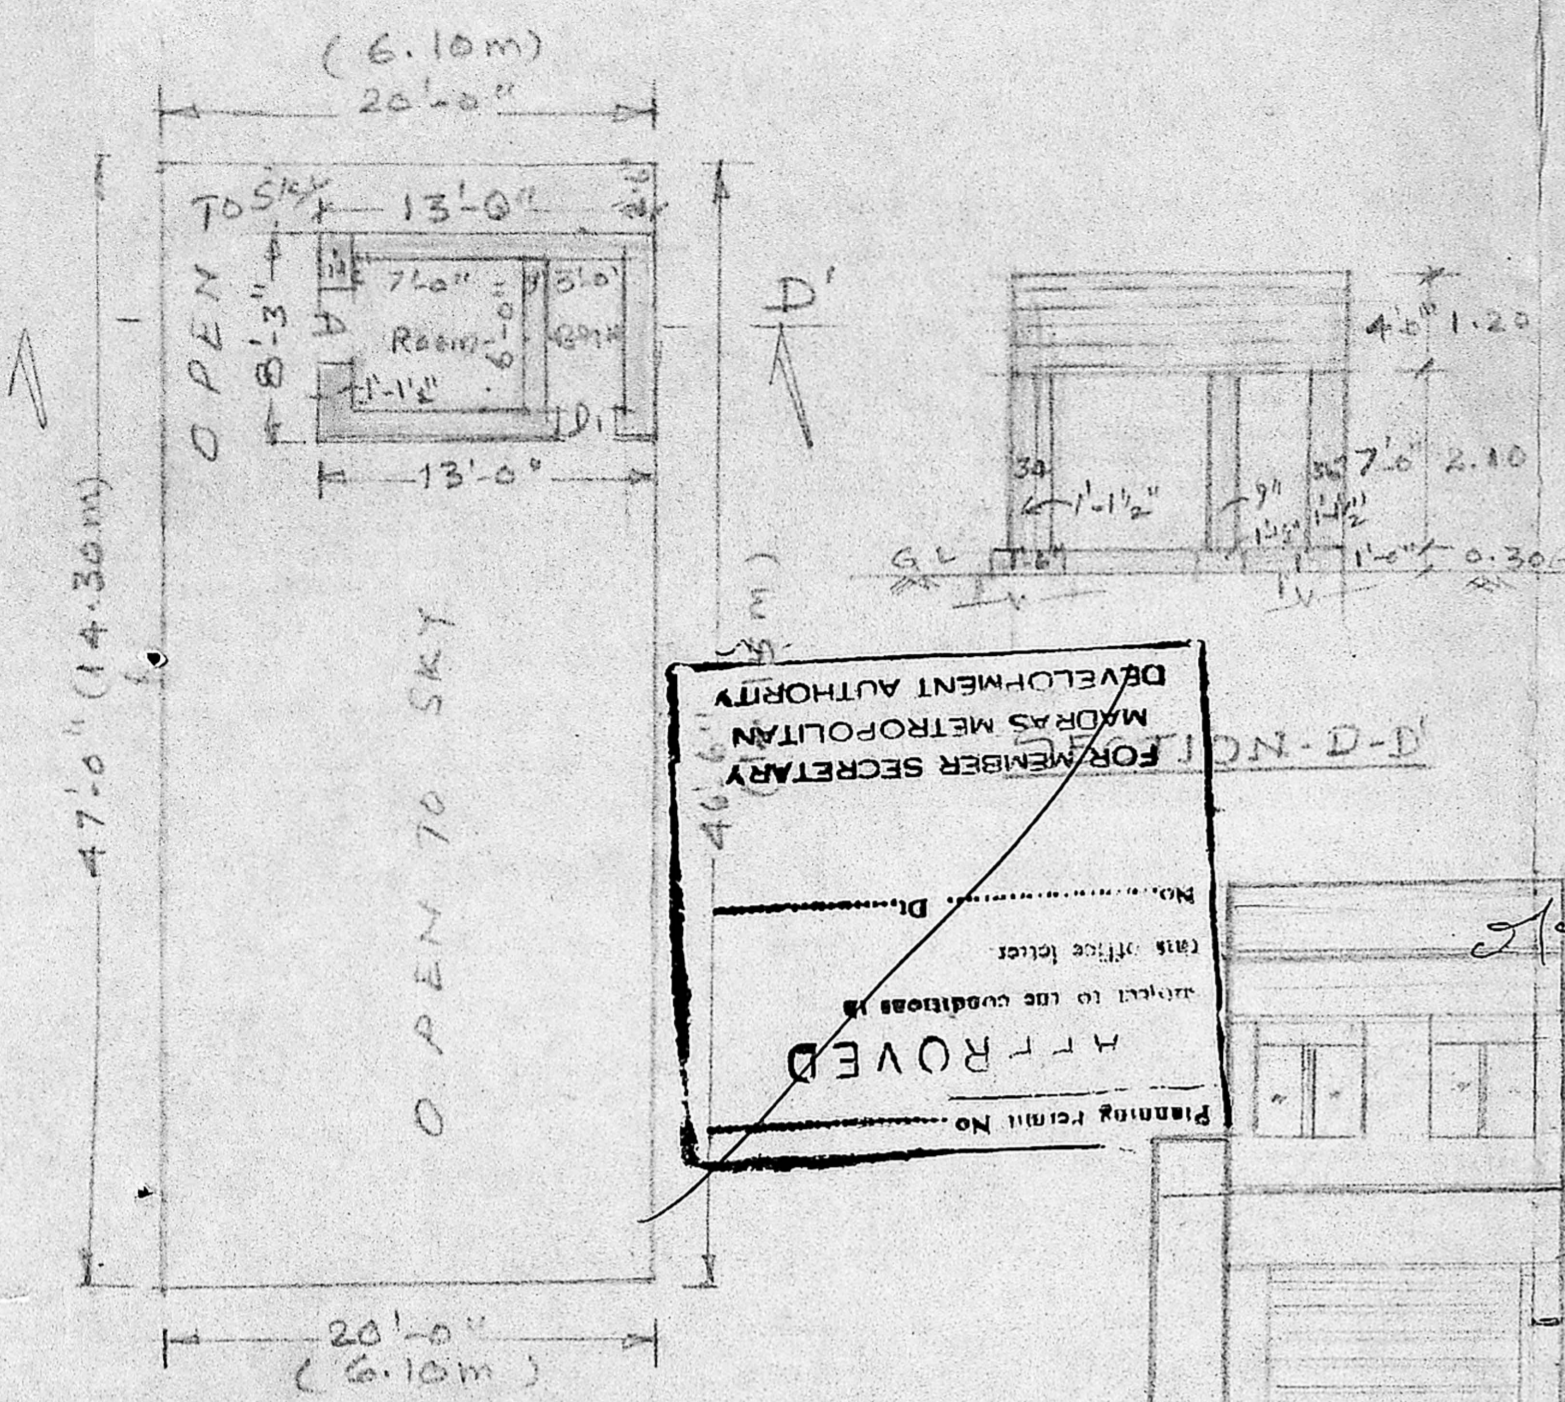 (6.10m)
20'-0"
TO SKY
13'-0"
OPEN
8'-3"
7'-0"
3'-0"
Room
6'-0"
1'-1½"
D1
13'-0"
47'-0" (14.30m)
OPEN TO SKY
46'-6"
20'-0"
(6.10m)
D'
4'-0" 1.20
7'-0" 2.10
1'-1½"
9"
1'-1½"
GL
1'-6"
1'-0"
0.30
SECTION-D-D'
Planning Permit No
APPROVED
subject to the conditions in
this office letter
No. Dt.
FOR MEMBER SECRETARY
MADRAS METROPOLITAN
DEVELOPMENT AUTHORITY